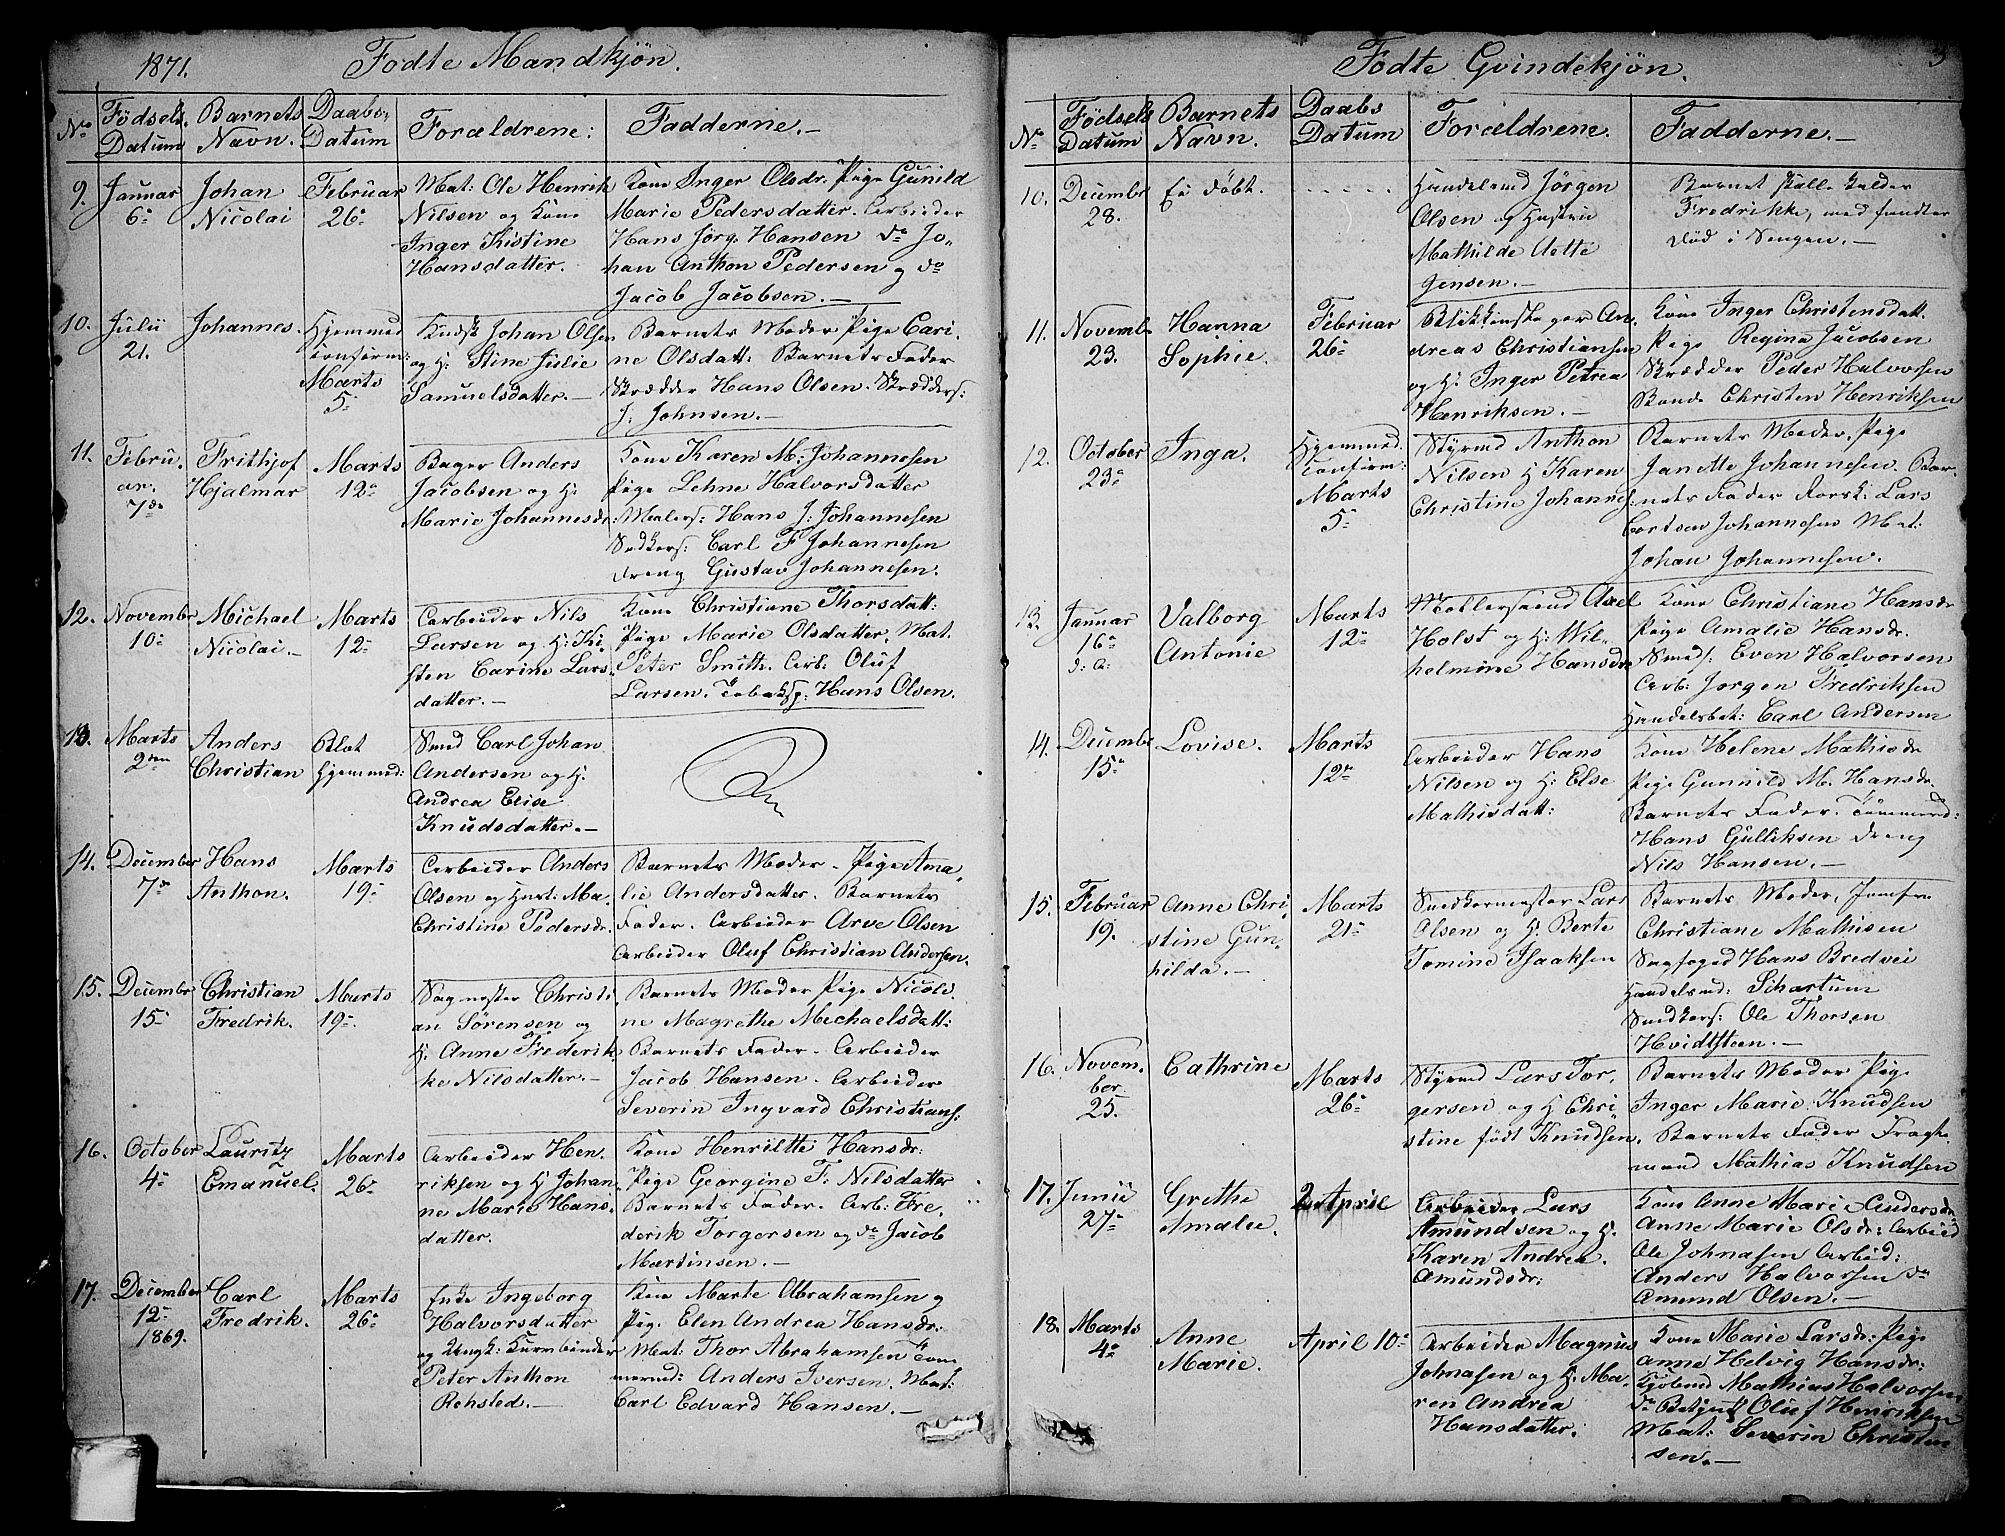 1871.
Födte Mandkjøn.
No
Födsels Datum
Barnets Navn.
Daabs Datum
Forældrene:
Fadderne.—
9.
Januar
6te
Johan
Nicolai
Februar
26de
Mat: Ole Henrik
Nilsen og Kone
Inger Kistine
Hansdatter.
Kone Inger Olsdr. Pige Gunild
Marie Pedersdatter. Arbeider
Hans Jörg. Hansen do Jo-
han Anthon Pedersen og do
Jacob Jacobsen.—
10.
Julii
21.
Johannes.
Hjemmed
Confirm:
Marts
5te
Kudsk Johan Olsen
og H. Stine Julie
Samuelsdatter.—
Barnets Moder Pige Cari-
ne Olsdatt: Barnets Fader
Skrædder Hans Olsen. Skrædders:
J. Johnsen.—
11.
Febru-
ar.
7de
Frithjof
Hjalmar
Marts
12te
Bager Anders
Jacobsen og H.
Marie Johannesdr.
Kone Karen M: Johannesen
Pige Lehne Halvorsdatter
Malers: Hans J: Johannesen
Snedkers: Carl F Johannesen
dreng Gustav Johannesen.
12.
Novembr
10de
Michael
Nicolai.—
Marts
12te
Arbeider Nils
Larsen og H: Ki-
sten Carine Lars-
datter.—
Kone Christiane Thorsdatt:
Pige Marie Olsdatter. Mat.
Peter Smith. Arb: Oluf
Larsen. Tobaksp: Hans Olsen.
13.
Marts
2den
Anders
Christian
Blot
Hjemmed:
Smed Carl Johan
Andersen og H.
Andrea Elise
Knudsdatter.—
14.
December
7de
Hans
Anthon.
Marts
19de
Arbeider Anders
Olsen og Hust: Ma-
Christine Pedersdr.
Barnets Moder. Pige Ama-
lie Andersdatter. Barnets
Fader. Arbeider Arve Olsen
Arbeider Oluf Christian Andersen.
15.
Decembr
15de
Christian
Fredrik.
Marts
19de
Sagmester Christi
an Sörensen og
H. Anne Frederik
ke Nilsdatter.—
Barnets Moder Pige Nicoli-
ne Magrethe Mechaelsdatt:
Barnets Fader. Arbeider
Jacob Hansen. Arbeider
Severin Ingvard Christians:
16.
October
4de
Lauritz
Emanuel.
Marts
26de
Arbeider Hen-
riksen og H Johan-
ne Marie Hans-
datter.
Kone Henriette Hansdr:
Pige Georgine F. Nilsdatter
Barnets Fader. Arb: Fre-
derik Torgersen og do Jacob
Martinsen.—
17.
December
12te
1869.
Carl
Fredrik.
Marts
26de
Enke Ingeborg
Halvorsdatter
og Ungk: Kurmbinder
Peter Anthon
Rehsted.—
Kone Marte Abrahamsen og
Pig. Elen Andrea Hansdr:
Mat: Thor Abrahamsen Töm
mermd: Anders Iversen. Mat:
Carl Edvard Hansen.—
Födte Qvindekjøn.
3
No
Födsels Datum
Barnets Navn.
Daabs Datum
Forældrene.
Fadderne.—
10.
Decembr
28.
Ei døbt.
Handelsmd Jörgen
Olsen og Hustru
Mathilde Aette
Jensen.—
Barnet skulle kaldes
Fredrikke, med fandtes
död i Sengen.—
11.
Novembr
23.
Hanna
Sophie.
Februar
26de
Blikkenslager An-
dreas Christiansen
og H: Inger Petrea
Henriksen.—
Kone Inger Christensdatt.
Pige Regina Jacobsen
Skrædder Peder Halvorsen
Bonde Christen Henriksen
12.
October
23de
Inga.
Hjemmed.
Confirm:
Marts
5te
Styrmd Anthon
Nilsen H Karen
Christine Johannes:
Barnets Moder, Pige
Janette Johannesen. Bar-
nets Fader Torsk: Lars
Cortsen Johannesen Mat:
Johan Johannesen.
13.
Januar
16de
d: A:
Valborg
Antonie
Marts
12te
Møllersvend Axel
Holst og H: Wil-
helmine Hansdr
Kone Christiane Hansdr
Pige Amalie Hansdr.
Smeds: Even Halvorsen
Arb: Jorgen Fredriksen
Handelsbet: Carl Andersen
14.
Decembr
15de
Lovise.
Marts
12te
Arbeider Hans
Nilsen og H: Else
Mathisdatt:
Kone Helene Mathisdr
Pige Gunnild M. Hansdr.
Barnets Fader. Tömmermd:
Hans Gulliksen dreng
Nils Hansen.—
15.
Februar
19.
Anne Chri-
stine Gun-
hilda.—
Marts
21de
Snedkermester Lars
Olsen og H: Berte
Tomine Isaaksen
Barnets Moder, Jomfru
Christiane Mathisen
Sagfoged Hans Bredvei
Handelsmd: Schartum
Snedkers: Ole Thorsen
Hvidtsteen.—
16.
Novem-
ber
25.
Cathrine
Marts
26de
Styrmd Lars Tor-
gersen og H Chri-
stine födt Knudsen.
Barnets Moder Pige
Inger Marie Knudsen
Barnets Fader Fragte
mand Mathias Knudsen
17.
Junii
27de
Grethe
Amalie.
2 April
Arbeider Lars
Amundsen og H.
Karen Andrea
Amundsdr:
Kone Anne Marie Andersdr
Anne Marie Olsdr: Arbeid
Ole Johnasen Arbeid:
Anders Halvorsen do
Amund Olsen.—
18.
Marts
4de
Anne
Marie.
April 10de
Arbeider Magnus
Johnasen og H. Ma-
ren Andrea
Hansdatter.
Kone Marie Larsdr: Pige
Anne Helvig Hansdr:
Kjøbmd Mathias Halvorsen
do Betjent Oluf Henriksen
Mat: Severin Christen
sen.—